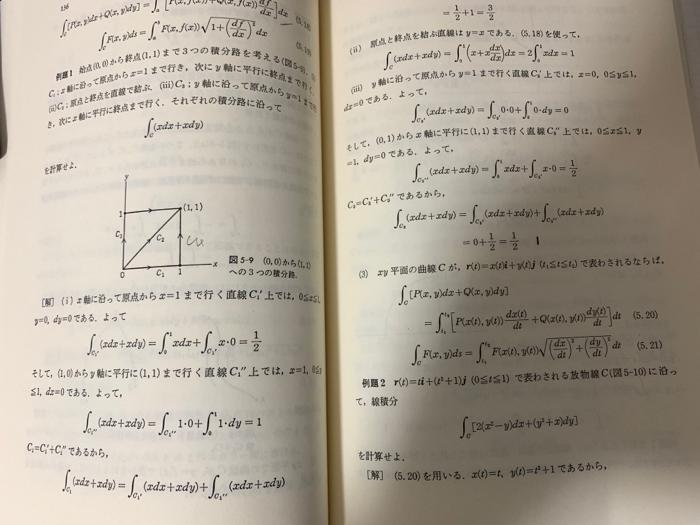 136
∫_C [P(x, y)dx+Q(x, y)dy] = ∫ [P(x, f(x))+Q(x, f(x)) df/dx] dx (5.18)
∫_C F(x, y)ds = ∫ F(x, f(x)) √(1+(df/dx)²) dx (5.19)
例題1 始点(0, 0)から終点(1, 1)まで3つの積分路を考える(図5-9).
C₁: x軸に沿って原点からx=1まで行き, 次にy軸に平行に終点まで行く.
(ii) C₂: 原点と終点を直線で結ぶ. (iii) C₃: y軸に沿って原点からy=1まで
き, 次にx軸に平行に終点まで行く. それぞれの積分路に沿って
∫_C (xdx+xdy)
を計算せよ.
y
1
(1, 1)
C₃
C₂
C₄
0
C₁
1
x
図5-9 (0, 0)から(1, 1)
への3つの積分路.
[解] (i) x軸に沿って原点からx=1まで行く直線C₁′上では, 0≤x≤1,
y=0, dy=0である. よって
∫_{C₁′} (xdx+xdy) = ∫₀¹ xdx+∫_{C₁′} x·0 = 1/2
そして, (1, 0)からy軸に平行に(1, 1)まで行く直線C₁″上では, x=1, 0≤y
≤1, dx=0である. よって,
∫_{C₁″} (xdx+xdy) = ∫_{C₁″} 1·0+∫₀¹ 1·dy = 1
C₁=C₁′+C₁″であるから,
∫_{C₁} (xdx+xdy) = ∫_{C₁′} (xdx+xdy)+∫_{C₁″} (xdx+xdy)
= 1/2+1 = 3/2
(ii) 原点と終点を結ぶ直線はy=xである. (5.18)を使って,
∫_C (xdx+xdy) = ∫₀¹ (x+x dx/dx) dx = 2∫₀¹ xdx = 1
(iii) y軸に沿って原点からy=1まで行く直線C₃′上では, x=0, 0≤y≤1,
dx=0である. よって,
∫_{C₃′} (xdx+xdy) = ∫_{C₃′} 0·0+∫₀¹ 0·dy = 0
そして, (0, 1)からx軸に平行に(1, 1)まで行く直線C₃″上では, 0≤x≤1, y
=1, dy=0である. よって,
∫_{C₃″} (xdx+xdy) = ∫₀¹ xdx+∫_{C₃″} x·0 = 1/2
C₃=C₃′+C₃″であるから,
∫_{C₃} (xdx+xdy) = ∫_{C₃′} (xdx+xdy)+∫_{C₃″} (xdx+xdy)
= 0+1/2 = 1/2
(3) xy平面の曲線Cが, r(t)=x(t)i+y(t)j (t₁≤t≤t₂)で表わされるならば,
∫_C [P(x, y)dx+Q(x, y)dy]
= ∫_{t₁}^{t₂} [P(x(t), y(t)) dx(t)/dt + Q(x(t), y(t)) dy(t)/dt] dt (5.20)
∫_C F(x, y)ds = ∫_{t₁}^{t₂} F(x(t), y(t)) √((dx/dt)²+(dy/dt)²) dt (5.21)
例題2 r(t)=ti+(t²+1)j (0≤t≤1)で表わされる放物線C(図5-10)に沿っ
て, 線積分
∫_C [2(x²−y)dx+(y²+x)dy]
を計算せよ.
[解] (5.20)を用いる. x(t)=t, y(t)=t²+1であるから,